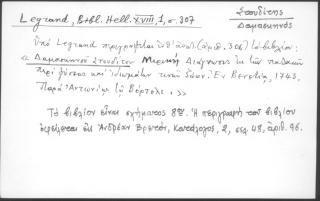 Legrand, Bibl. Hell. XVIII, 1, σ. 307
Στουδίτης
Δαμασκηνός
Ὑπὸ Legrand περιγράφεται (ἀριθ. 306) τὸ βιβλίον:
« Δαμασκηνοῦ Στουδίτου Μερικὴ Διάγνωσις ἐκ τῶν παλαιῶν
περὶ φύσεως καὶ ἰδιωμάτων τινῶν ζώων. Ἐν Βενετίᾳ, 1743.
Παρὰ Ἀντωνίῳ τῷ Βόρτολι. »
Τὸ βιβλίον εἶναι σχήματος 8ον. Ἡ περιγραφὴ τοῦ βιβλίου
ὀφείλεται εἰς Ἀνδρέαν Βρετόν, Κατάλογος, 2, σελ. 48, ἀριθ. 96.